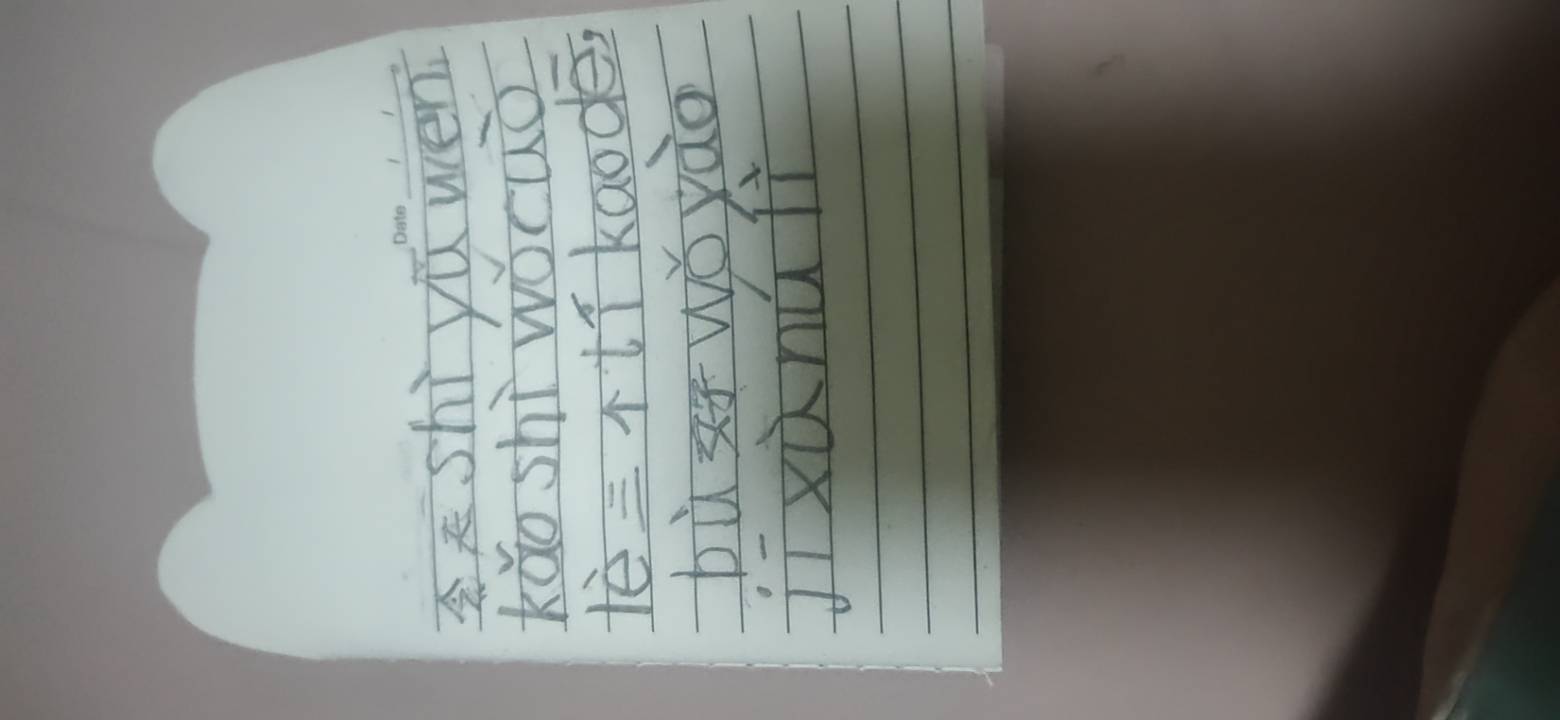 Date
今天shì yǔ wén
kǎo shì wǒ cuò
lè 三个tí kao dē,
bù 好 wǒ yào
jī xà nu lì